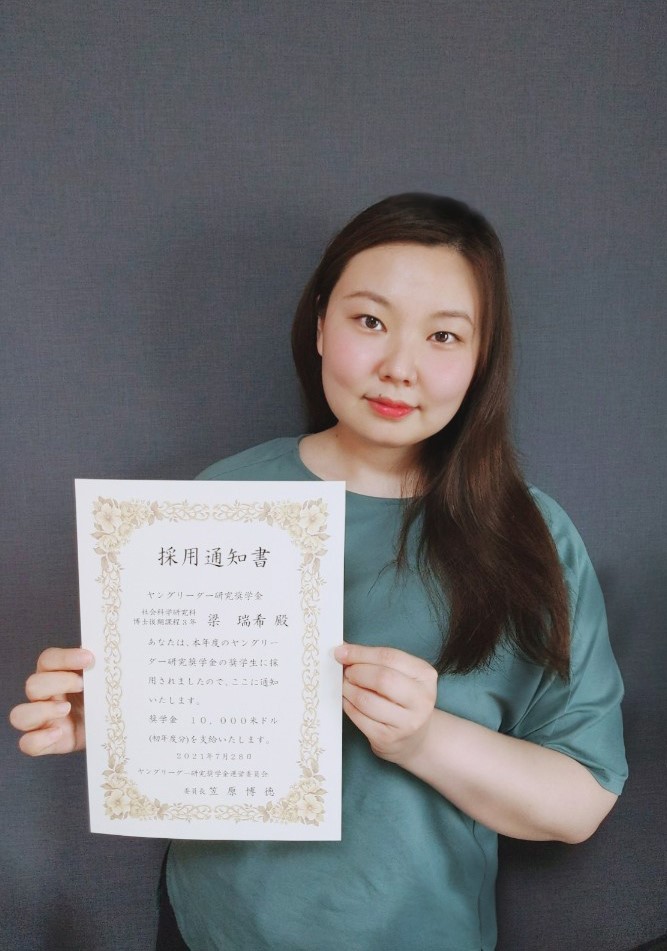 採用通知書
ヤングリーダー研究奨学金
社会科学研究科
博士後期課程3年 梁 瑞希 殿
あなたは、本年度のヤングリー
ダー研究奨学金の奨学生に採
用されましたので、ここに通知
いたします。
奨学金 10,000米ドル
(初年度分)を支給いたします。
2021年7月28日
ヤングリーダー研究奨学金運営委員会
委員長 笠 原 博 徳